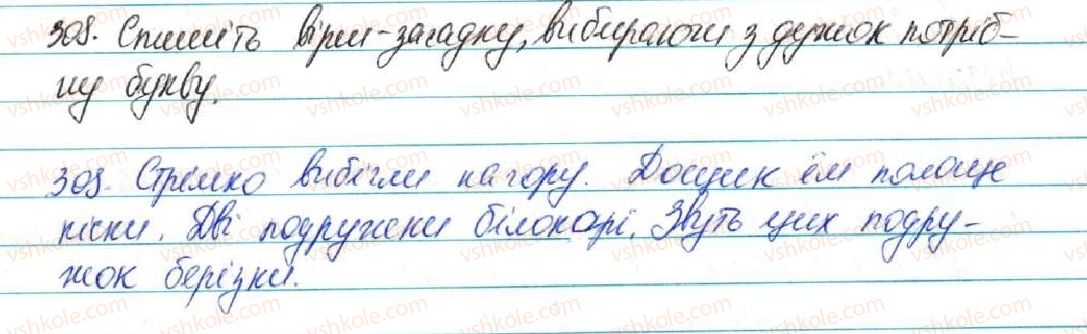 308. Спишіть вірш-загадку, вибираючи з дужок потріб-
ну букву.
308. Стрімко вибігли на гору. Дощик їм полоще
кіски. Дві подружки білокорі. Звуть цих подру-
жок берізки.